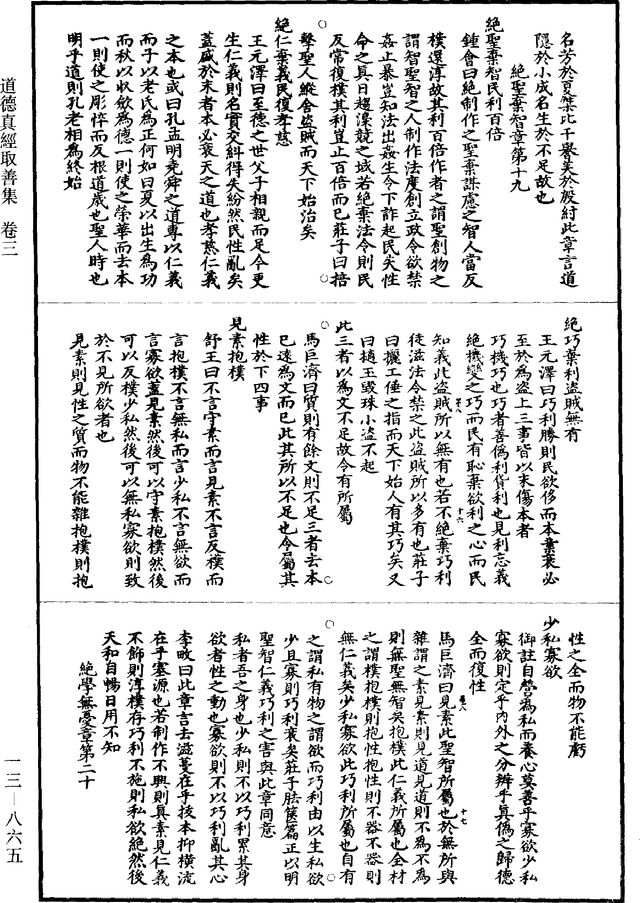 道德真經取善集　卷三
名芳於夏桀比干譽美於殷紂此章言道
隱於小成名生於不足故也
絕聖棄智章第十九
絕聖棄智民利百倍
鍾會曰絕制作之聖棄謀慮之智人當反
樸還淳故其利百倍作者之謂聖創物之
謂智聖智之人制作法度創立政令欲禁
姦止暴豈知法出姦生令下詐起民失性
命之真日趨澆競之域若絕棄法令則民
反常復樸其利豈止百倍而已莊子曰掊
擊聖人縱舍盜賊而天下始治矣
絕仁棄義民復孝慈
王元澤曰至德之世父子相親而足今更
生仁義則名實交糾得失紛然民性亂矣
蓋盛於末者本必衰天之道也孝慈仁義
之本也或曰孔孟明堯舜之道專以仁義
而子以老氏為正何如曰夏以出生為功
而秋以收斂為德一則使之榮華而去本
一則使之彫悴而反根道歲也聖人時也
明乎道則孔老相為終始
絕巧棄利盜賊無有
王元澤曰巧利勝則民欲侈而本業衰必
至於為盜上三事皆以末傷本者
巧機巧也巧者善偽利貨利也見利忘義
絕機變之巧而民有恥棄欲利之心而民
知義此盜賊所以無有也若不絕棄巧利
徒滋法令禁之此盜賊所以多有也莊子
曰攦工倕之指而天下始人有其巧矣又
曰擿玉毀珠小盜不起
此三者以為文不足故令有所屬
馬巨濟曰質則有餘文則不足三者去本
已遠為文而已此其所以不足也今屬其
性於下四事
見素抱樸
舒王曰不言守素而言見素不言反樸而
言抱樸不言無私而言少私不言無欲而
言寡欲蓋見素然後可以守素抱樸然後
可以反樸少私然後可以無私寡欲則致
於不見所欲者也
見素則見性之質而物不能雜抱樸則抱
性之全而物不能虧
少私寡欲
御註自營為私而養心莫善乎寡欲少私
寡欲則定乎內外之分辨乎真偽之歸德
全而復性
馬巨濟曰見素此聖智所屬也於無所與
雜謂之素見素則見道見道則不為不為
則無聖無智矣抱樸此仁義所屬也全材
之謂樸抱樸則抱性抱性則不器不器則
無仁義矣少私寡欲此巧利所屬也自有
之謂私有物之謂欲而巧利由以生私欲
少且寡則巧利衰矣莊子胠篋篇正以明
聖智仁義巧利之害與此章同意
私者吾之身也少私則不以巧利累其身
欲者性之動也寡欲則不以巧利亂其心
李畋曰此章言去滋蔓在乎拔本抑橫流
在乎塞源也若制作不興則真素見仁義
不飾則淳樸存巧利不施則私欲絕然後
天和自暢日用不知
絕學無憂章第二十
一三—八六五